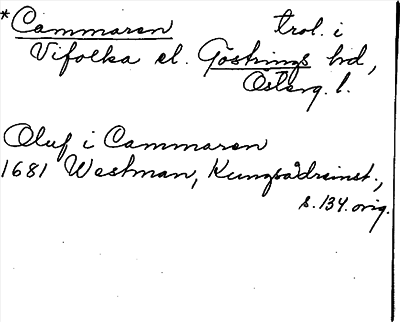 *Cammaren trol. i
Vifolka el. Göstrings hd,
Österg. l.
Oluf i Cammaren
1681 Westman, Kungsådreinst.,
s. 134. orig.